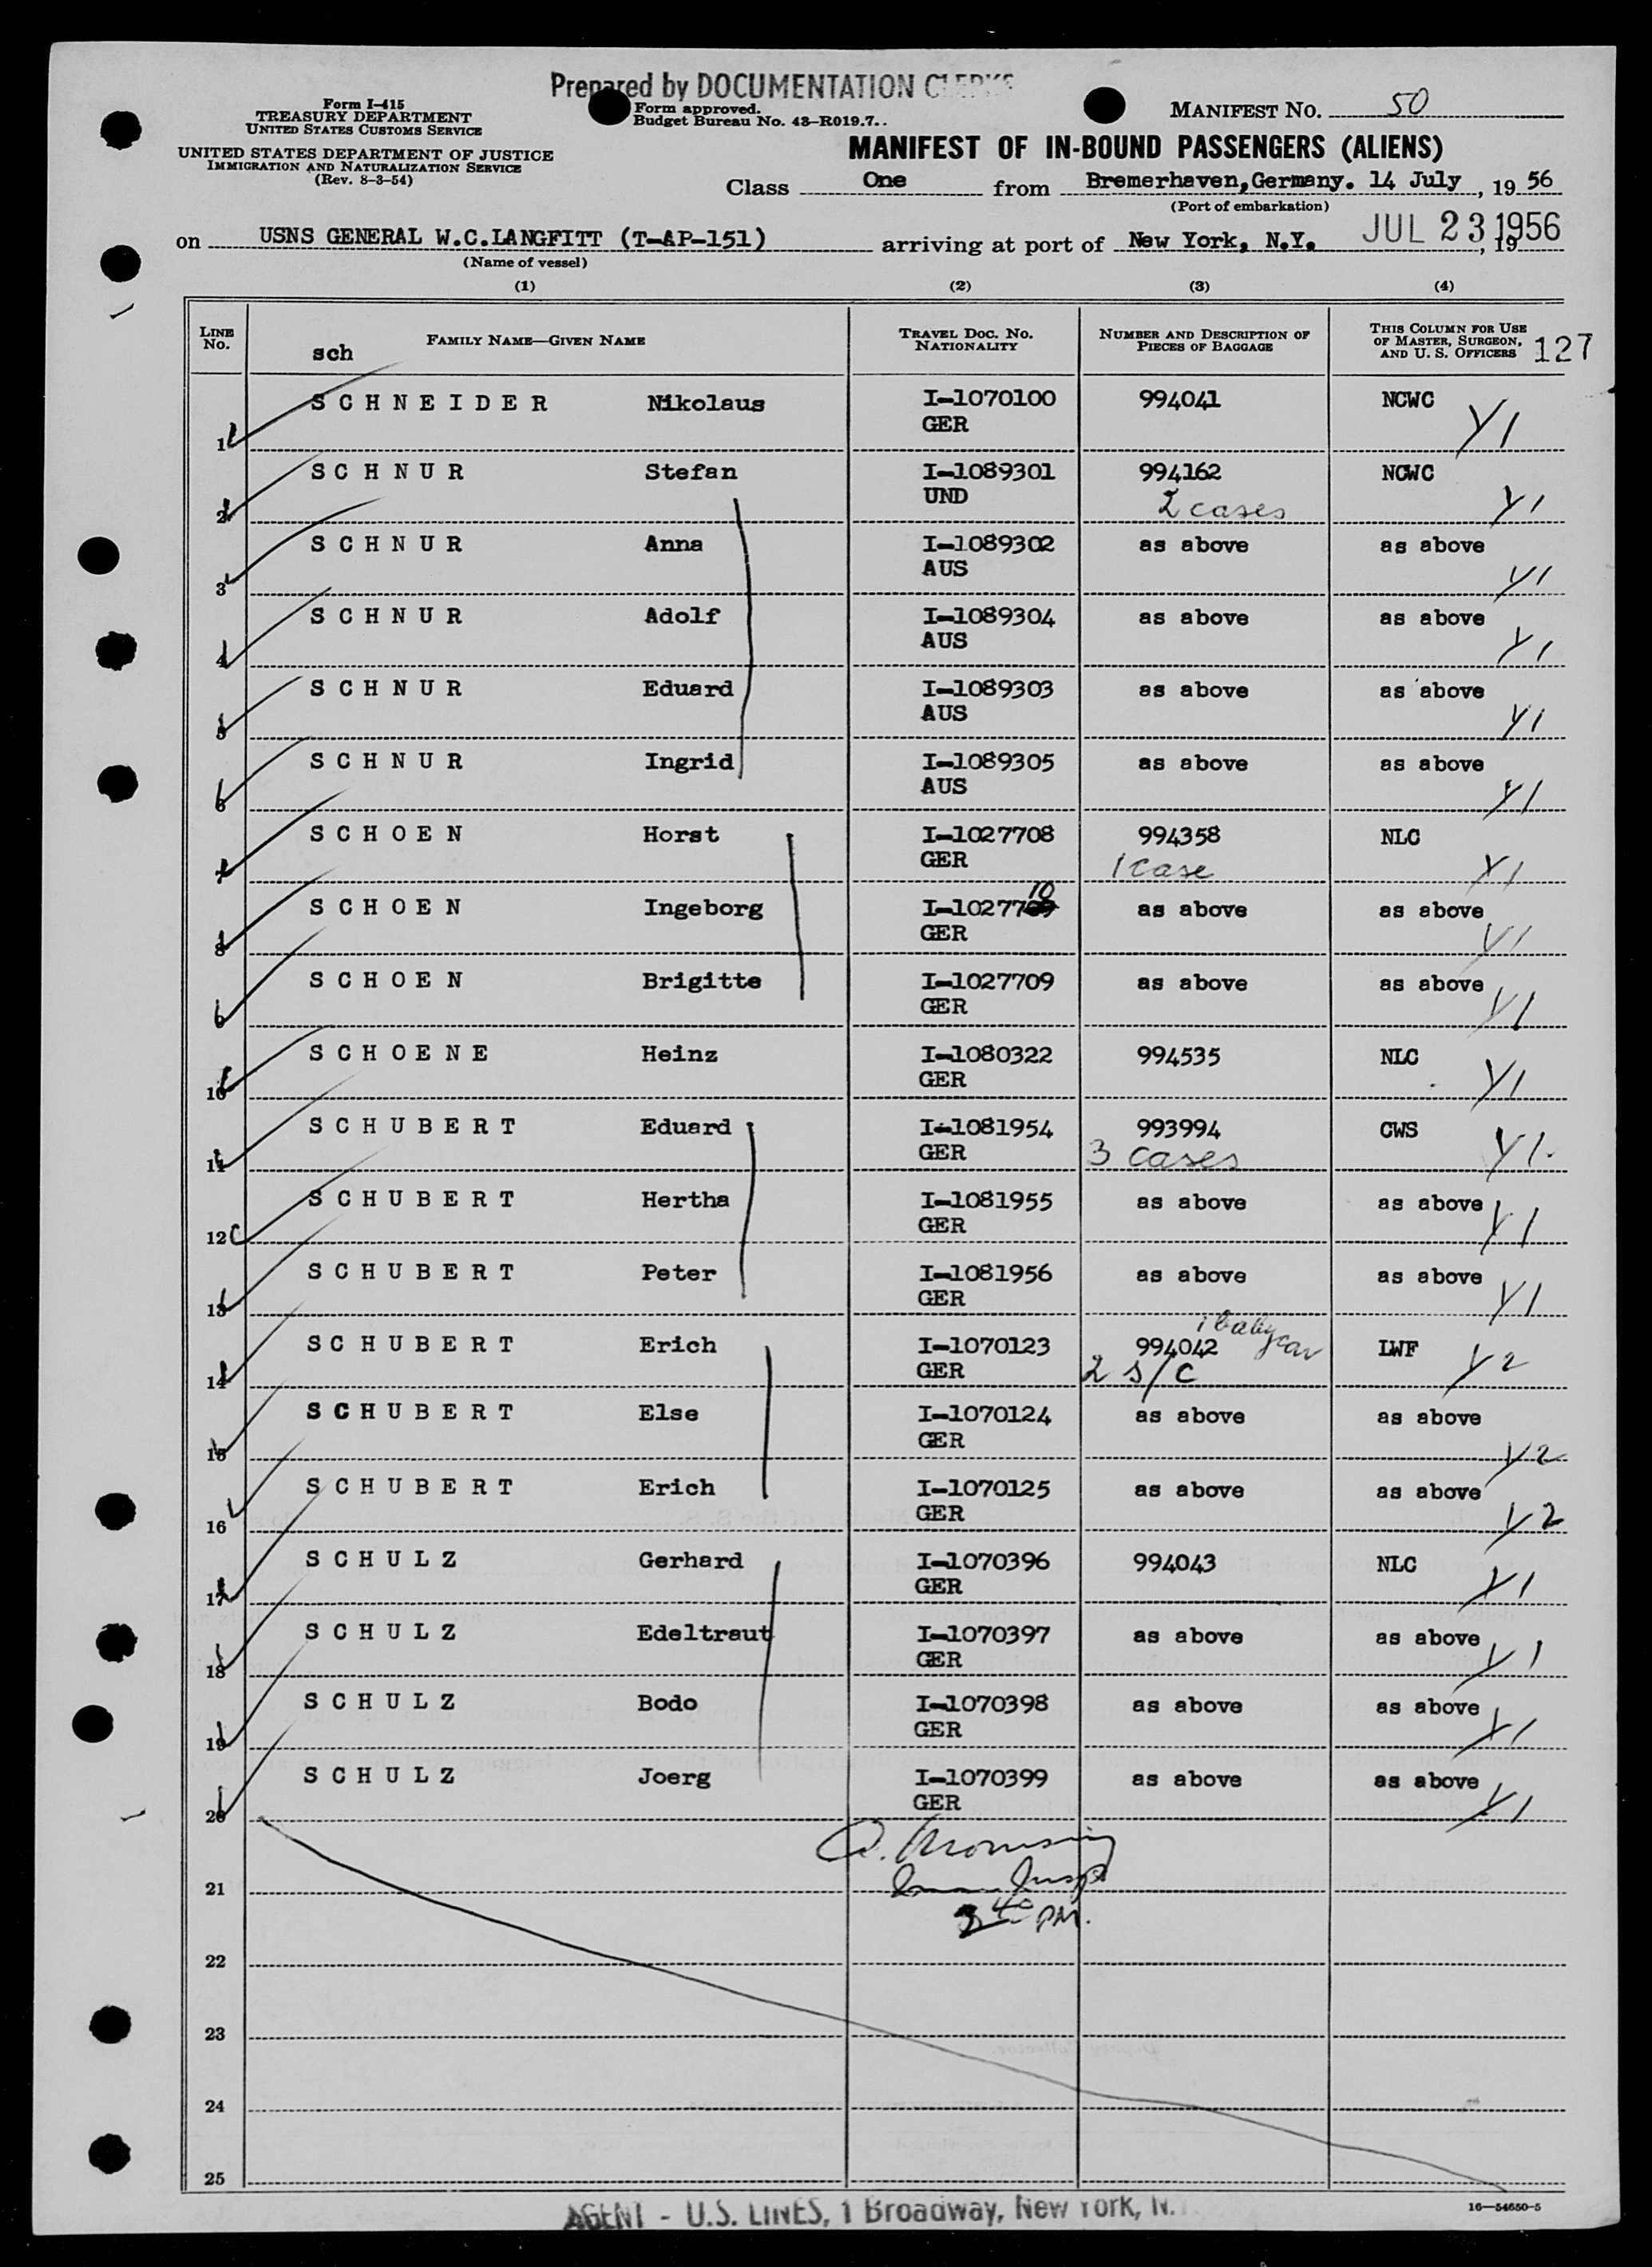 Prepared by DOCUMENTATION CLERKS
Form I-415
TREASURY DEPARTMENT
UNITED STATES CUSTOMS SERVICE
UNITED STATES DEPARTMENT OF JUSTICE
IMMIGRATION AND NATURALIZATION SERVICE
(Rev. 8-3-54)
Form approved.
Budget Bureau No. 43-R019.7..
MANIFEST NO. 50
MANIFEST OF IN-BOUND PASSENGERS (ALIENS)
Class One from Bremerhaven,Germany. 14 July, 19 56
(Port of embarkation)
on USNS GENERAL W.C.LANGFITT (T-AP-151) arriving at port of New York, N.Y. JUL 23 1956, 19
(Name of vessel)
(1) (2) (3) (4)
LINE NO. FAMILY NAME—GIVEN NAME TRAVEL DOC. NO. NATIONALITY NUMBER AND DESCRIPTION OF PIECES OF BAGGAGE THIS COLUMN FOR USE OF MASTER, SURGEON, AND U. S. OFFICERS 127
sch
1 SCHNEIDER Nikolaus I-1070100 994041 NCWC
GER Y1
2 SCHNUR Stefan I-1089301 994162 NCWC
UND 2 cases Y1
3 SCHNUR Anna I-1089302 as above as above
AUS Y1
4 SCHNUR Adolf I-1089304 as above as above
AUS Y1
5 SCHNUR Eduard I-1089303 as above as above
AUS Y1
6 SCHNUR Ingrid I-1089305 as above as above
AUS Y1
7 SCHOEN Horst I-1027708 994358 NLC
GER 1 case Y1
8 SCHOEN Ingeborg I-1027710 as above as above
GER Y1
9 SCHOEN Brigitte I-1027709 as above as above
GER Y1
10 SCHOENE Heinz I-1080322 994535 NLC
GER Y1
11 SCHUBERT Eduard I-1081954 993994 CWS
GER 3 cases Y1.
12 SCHUBERT Hertha I-1081955 as above as above
GER Y1
13 SCHUBERT Peter I-1081956 as above as above
GER Y1
14 SCHUBERT Erich I-1070123 994042 1 baby car LWF
GER 2 s/c Y2
15 SCHUBERT Else I-1070124 as above as above
GER Y2
16 SCHUBERT Erich I-1070125 as above as above
GER Y2
17 SCHULZ Gerhard I-1070396 994043 NLC
GER Y1
18 SCHULZ Edeltraut I-1070397 as above as above
GER Y1
19 SCHULZ Bodo I-1070398 as above as above
GER Y1
20 SCHULZ Joerg I-1070399 as above as above
GER Y1
21
3 40 PM.
22
23
24
25
16—54650-5
AGENT - U.S. LINES, 1 Broadway, New York, N.Y.